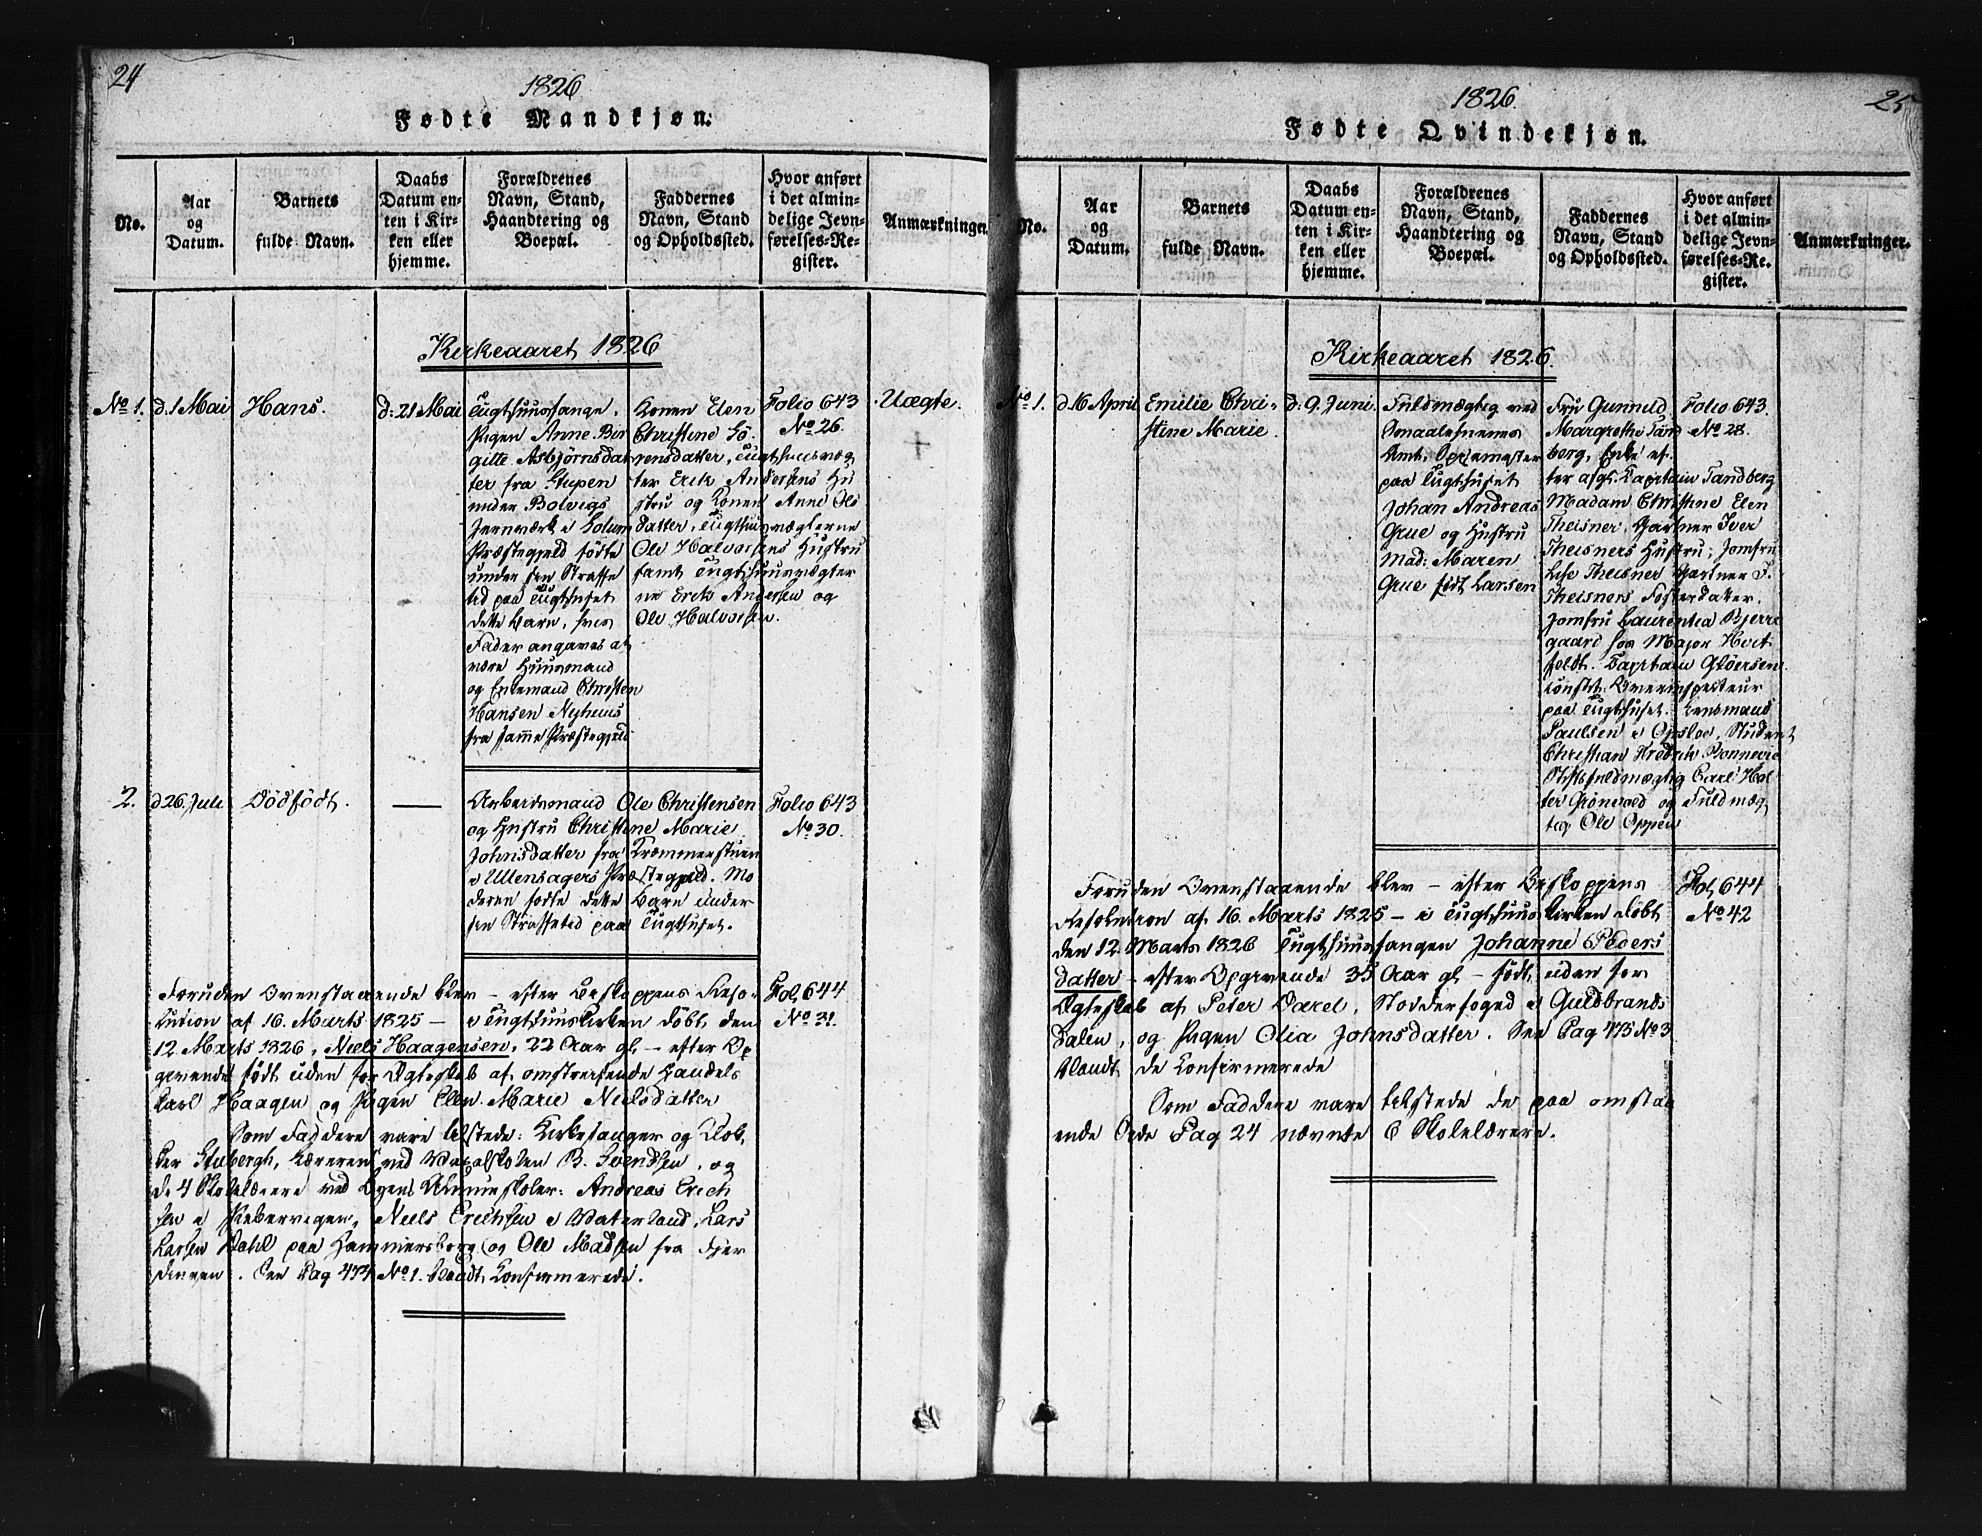 24
1826
Fødte Mandkjøn.
No.
Aar og Datum.
Barnets fulde Navn.
Daabs Datum enten i Kirken eller hjemme.
Forældrenes Navn, Stand, Haandtering og Boepæl.
Faddernes Navn, Stand og Opholdssted.
Hvor anført i det almindelige Jevnførelses-Register.
Anmærkninger.
Kirkeaaret 1826
No 1.
d. 1 Mai
Hans.
d: 21 Mai
Tugthuusfange,
Pigen Anne Bir
gitte Asbjørnsdat
ter fra Stupen
under Bolvigs
Jernværk i Solum
Præstegjeld fødte
under sin Straffe
tid paa Tugthuset
dette Barn, hvis
Fader angaves at
være Huusmand
og Enkemand Christen
Hansen Nyhuus
fra samme Præstegjeld
Konen Elen
Christine Sö-
rensdatter, Tugthuusvæg
ter Erik Andersens Hu
stru og Konen Anne Ols
datter, Tugthuusvægterne
Ole Halvorsens Hustru
samt Tugthuusvægter
ne Erik Andersen og
Ole Halvorsen.
Folio 643
No 26.
Uægte.
2.
d 26. Juli
Dödfödt.
Arbeidsmand Ole Christensen
og Hustru Christine Marie
Johnsdatter fra Kræmmerstuen
i Ullensagers Præstegjeld. Mo
deren fødte dette Barn under
sin Straffetid paa Tugthuset.
Folio 643
No 30.
Foruden Ovenstaaende blev - efter Biskoppens Reso-
lution af 16. Marts 1825 - i Tugthuuskirken döbt den
12 Marts 1826, Niels Haagensen, 22 Aar gl. - efter Op
givende född uden for Ægteskab af omstreifende Handels
karl Haagen og Pigen Ellen Marie Nielsdatter
Som Faddere vare tilstede: Kirkesanger og Klok-
ker Stubergh, Læreren ved Vaxalskolen B. Svendsen, og
de 4 Skolelærere ved Byens Almueskoler: Andreas Erich
sen i Pibervigen, Niels Erichsen i Vaterland, Lars
Larsen Dahl paa Hammersborg og Ole Madsen fra Fjer
dingen. See Pag 474 No 1. blandt Konfirmerede.
Fol. 644
No 31.
1826.
25
Fødte Qvindekjøn.
No.
Aar og Datum.
Barnets fulde Navn.
Daabs Datum enten i Kirken eller hjemme.
Forældrenes Navn, Stand, Haandtering og Boepæl.
Faddernes Navn, Stand og Opholdssted.
Hvor anført i det almindelige Jevnførelses-Register.
Anmærkninger.
Kirkeaaret 1826.
No 1.
d. 16 April
Emilie Chri-
stine Marie.
d: 9. Juni.
Fuldmægtig ved
Amt, Spisemester
paa Tugthuset
Johan Andreas
Grue og Hustru
Mad: Maren
Grue födt Larsen
Fru Gunnild
Margrethe Sand
berg, Enke ef-
ter afg. Kaptain Sandberg
Madam Christine Elen
Theisner, Gartner Iver
Theisners Hustru; Jomfru
Lise Theisner Gartner I.
Theisners Fosterdatter.
Jomfru Laurentia Bjerre
gaard hos Major Hvit
feldt. Kaptain Glöersen
const. Overinspecteur
paa Tugthuset. Lensmand
Paulsen i Opsloe, Student
Christian Fredrik Bonnevie
Stiftsfuldmægtig Carl Hol
ter Grönvold og Fuldmæg
tig Ole Oppen
Folio 643.
No 28.
Foruden Ovenstaaende blev - efter Biskoppens
Resolution af 16. Marts 1825 - i Tugthuuskirken döbt
den 12. Marts 1826 Tugthuusfangen Johanne Peders
datter - efter Opgivende 35 Aar gl - födt uden for
Ægteskab af Peter Carel, Stodderfoged i Guldbrands
dalen, og Pigen Olia Johnsdatter. See Pag 475 No 3
blandt de Konfirmerede
Som Faddere vare tilstede de paa omstaa
ende Side Pag 24 nævnte 6 Skolelærere.
Fol. 644
No 42